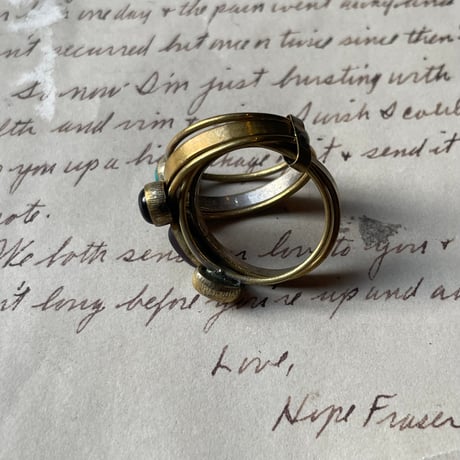 one day & the pain went away and
n't recurred but once or twice since then
So now I'm just busting with
lth and vim & I wish I could
p you up a big package of it & send it
note.
We both send love to you &
n't long before you're up and
Love,
Hope Fraser